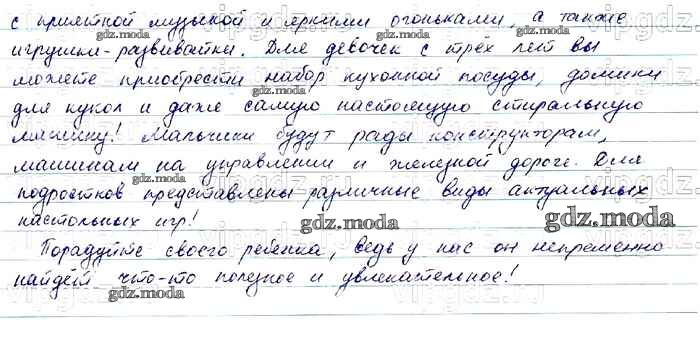 с приятной музыкой и яркими огоньками, а также
игрушки-развивайки. Для девочек с трёх лет вы
можете приобрести набор кухонной посуды, домики
для кукол и даже самую настоящую стиральную
машину! Мальчики будут рады конструкторам,
машинам на управлении и железной дороге. Для
подростков представлены различные виды актуальных
настольных игр!
Порадуйте своего ребенка, ведь у нас он непременно
найдёт что-то полезное и увлекательное!
gdz.moda
gdz.moda
gdz.moda
gdz.moda
gdz.moda
gdz.moda
gdz.moda
gdz.moda
vipgdz.ru